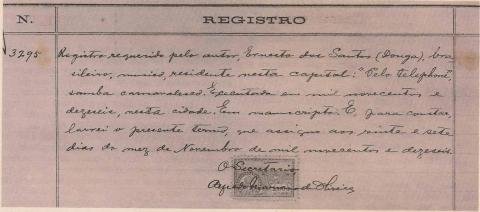 N. REGISTRO
3295 Registro requerido pelo autor, Ernesto dos Santos (Donga), bra
sileiro, musico, residente nesta capital: "Pelo telephone",
samba carnavalesco. Executada em mil novecentos e
dezeseis, nesta cidade. Em manuscripto. E, para constar,
lavrei o presente termo, que assigno aos vinte e sete
dias do mez de Novembro de mil novecentos e dezeseis.
O Secretario
Mariano de Oliveira